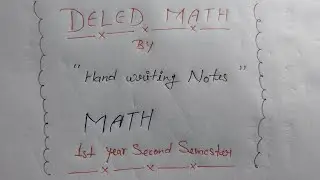 DELED MATH
BY
"Hand writing Notes"
MATH
1st year Second Semester